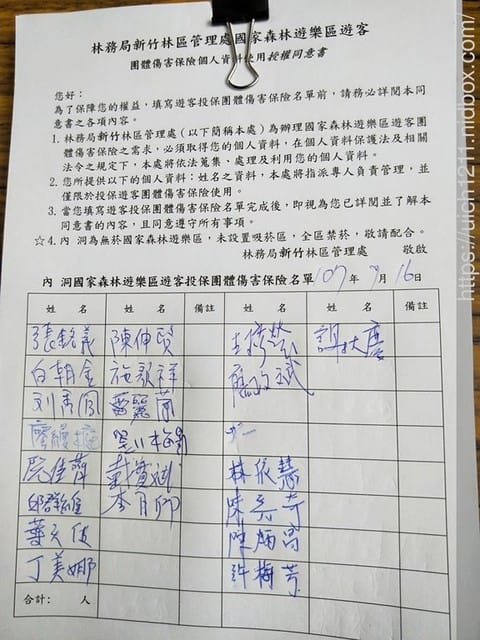 林務局新竹林區管理處國家森林遊樂區遊客
團體傷害保險個人資料使用授權同意書
您好：
為了保障您的權益，填寫遊客投保團體傷害保險名單前，請務必詳閱本同
意書之各項內容。
1. 林務局新竹林區管理處（以下簡稱本處）為辦理國家森林遊樂區遊客團
體傷害保險之需求，必須取得您的個人資料，在個人資料保護法及相關
法令之規定下，本處將依法蒐集、處理及利用您的個人資料。
2. 您所提供以下的個人資料：姓名之資料，本處將指派專人負責管理，並
僅限於投保遊客團體傷害保險使用。
3. 當您填寫遊客投保團體傷害保險名單完成後，即視為您已詳閱並了解本
同意書的內容，且同意遵守所有事項。
☆4. 內 洞為無菸國家森林遊樂區，未設置吸菸區，全區禁菸，敬請配合。
林務局新竹林區管理處 敬啟
內 洞國家森林遊樂區遊客投保團體傷害保險名單 107 年 9 月 16 日
姓 名 備註 姓 名 備註
張銘義 陳伸賢
白朝金 施敬祥
林依慧
李月卿
丁美娜
合計： 人
https://uich1211.nidbox.com/